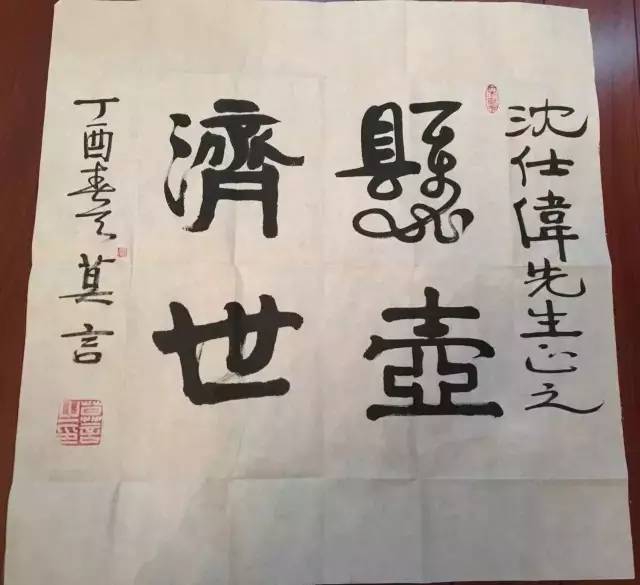 沈仕偉先生正之
懸壺
濟世
丁酉春天
莫言